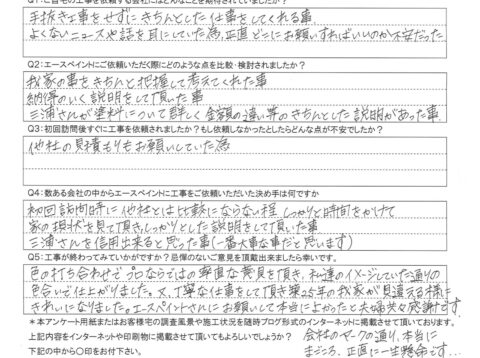 Q1:ご自宅の工事を依頼する会社にはどんなことを期待されていましたか?
手抜き工事をせずにきちんとした仕事をしてくれる事.
よくないニュースや話を耳にしていた為、正直どこにお願いすればいいのか不安だった
Q2:エースペイントにご依頼いただく際にどのような点を比較・検討されましたか?
我家の事をきちんと把握して考えてくれた事
納得のいく説明をして頂いた事
三浦さんが塗料について詳しく金額の違い等のきちんとした説明があった事.
Q3:初回訪問後すぐに工事を依頼されましたか?もし依頼しなかったとしたらどんな点が不安でしたか?
他社の見積もりもお願いしていた為
Q4:数ある会社の中からエースペイントに工事をご依頼いただいた決め手は何ですか
初回訪問時に他社とは比較にならない程しっかりと時間をかけて
家の現状を見て頂き、しっかりとした説明をして頂いた事
三浦さんを信用出来ると思った事(一番大事な事だと思います)
Q5:工事が終わってみていかがですか?忌憚のないご意見を頂戴出来ましたら幸いです。
色の打ち合わせでプロならではの率直な意見を頂き、私達のイメージしていた通りの
色合いで仕上がりました。又、丁寧な仕事をして頂き築25年の我家が見違える様に
きれいになりました。エースペイントさんにお願いして本当によかったと夫婦共々感謝です
*本アンケート用紙またはお客様宅の調査風景や施工状況を随時ブログ形式のインターネットに掲載させて頂いております。
上記内容をインターネットや印刷物に掲載させて頂いてもよろしいでしょうか?
下記の中から〇印をお付下さい。
会社のマークの通り、本当に
まごころ、正直に一生懸命です…